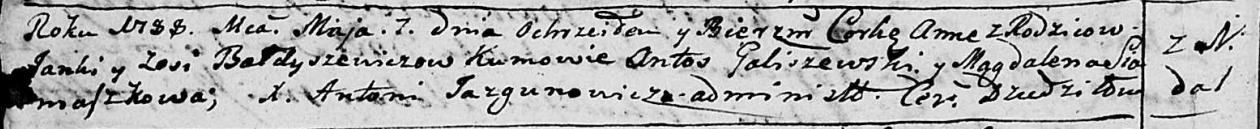 Roku 1788. Mca. Maja. 7. dnia Ochrzciłem y Bierzm Corkę Annę z Rodzicow
Janki y Zosi Bałdyszewiczow Kumowie Antos Galiszewski. y Magdalena Sia
maszkowa; X. Antoni Jazgunowicz administt. Cer. Dzudziłow
z N.
dal